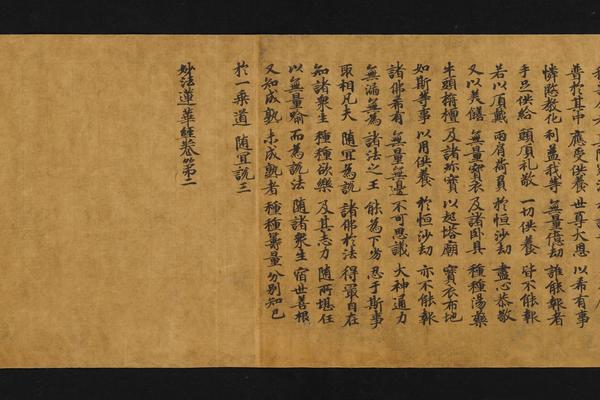 普於其中 應受供養 世尊大恩 以希有事
憐愍教化 利益我等 無量億劫 誰能報者
手足供給 頭頂礼敬 一切供養 皆不能報
若以頂戴 兩肩荷負 於恒沙劫 盡心恭敬
又以美饍 無量寶衣 及諸臥具 種種湯藥
牛頭栴檀 及諸珎寶 以起塔廟 寶衣布地
如斯等事 以用供養 於恒沙劫 亦不能報
諸佛希有 無量無邊 不可思議 大神通力
無漏無為 諸法之王 能為下劣 忍于斯事
取相凡夫 隨宜為說 諸佛於法 得冣自在
知諸衆生 種種欲樂 及其志力 隨所堪任
以無量喻 而為說法 隨諸衆生 宿世善根
又知成熟 未成熟者 種種籌量 分別知已
於一乘道 隨宜說三
妙法蓮華經卷第二